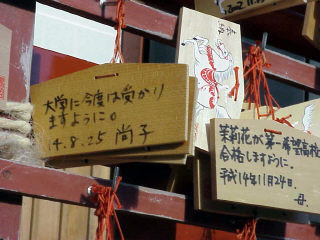 大学に今度は受かり
ますように。
14.8.25 尚子
茉莉花が第一希望高校に
合格しますように。
平成14年11月24日.
母.